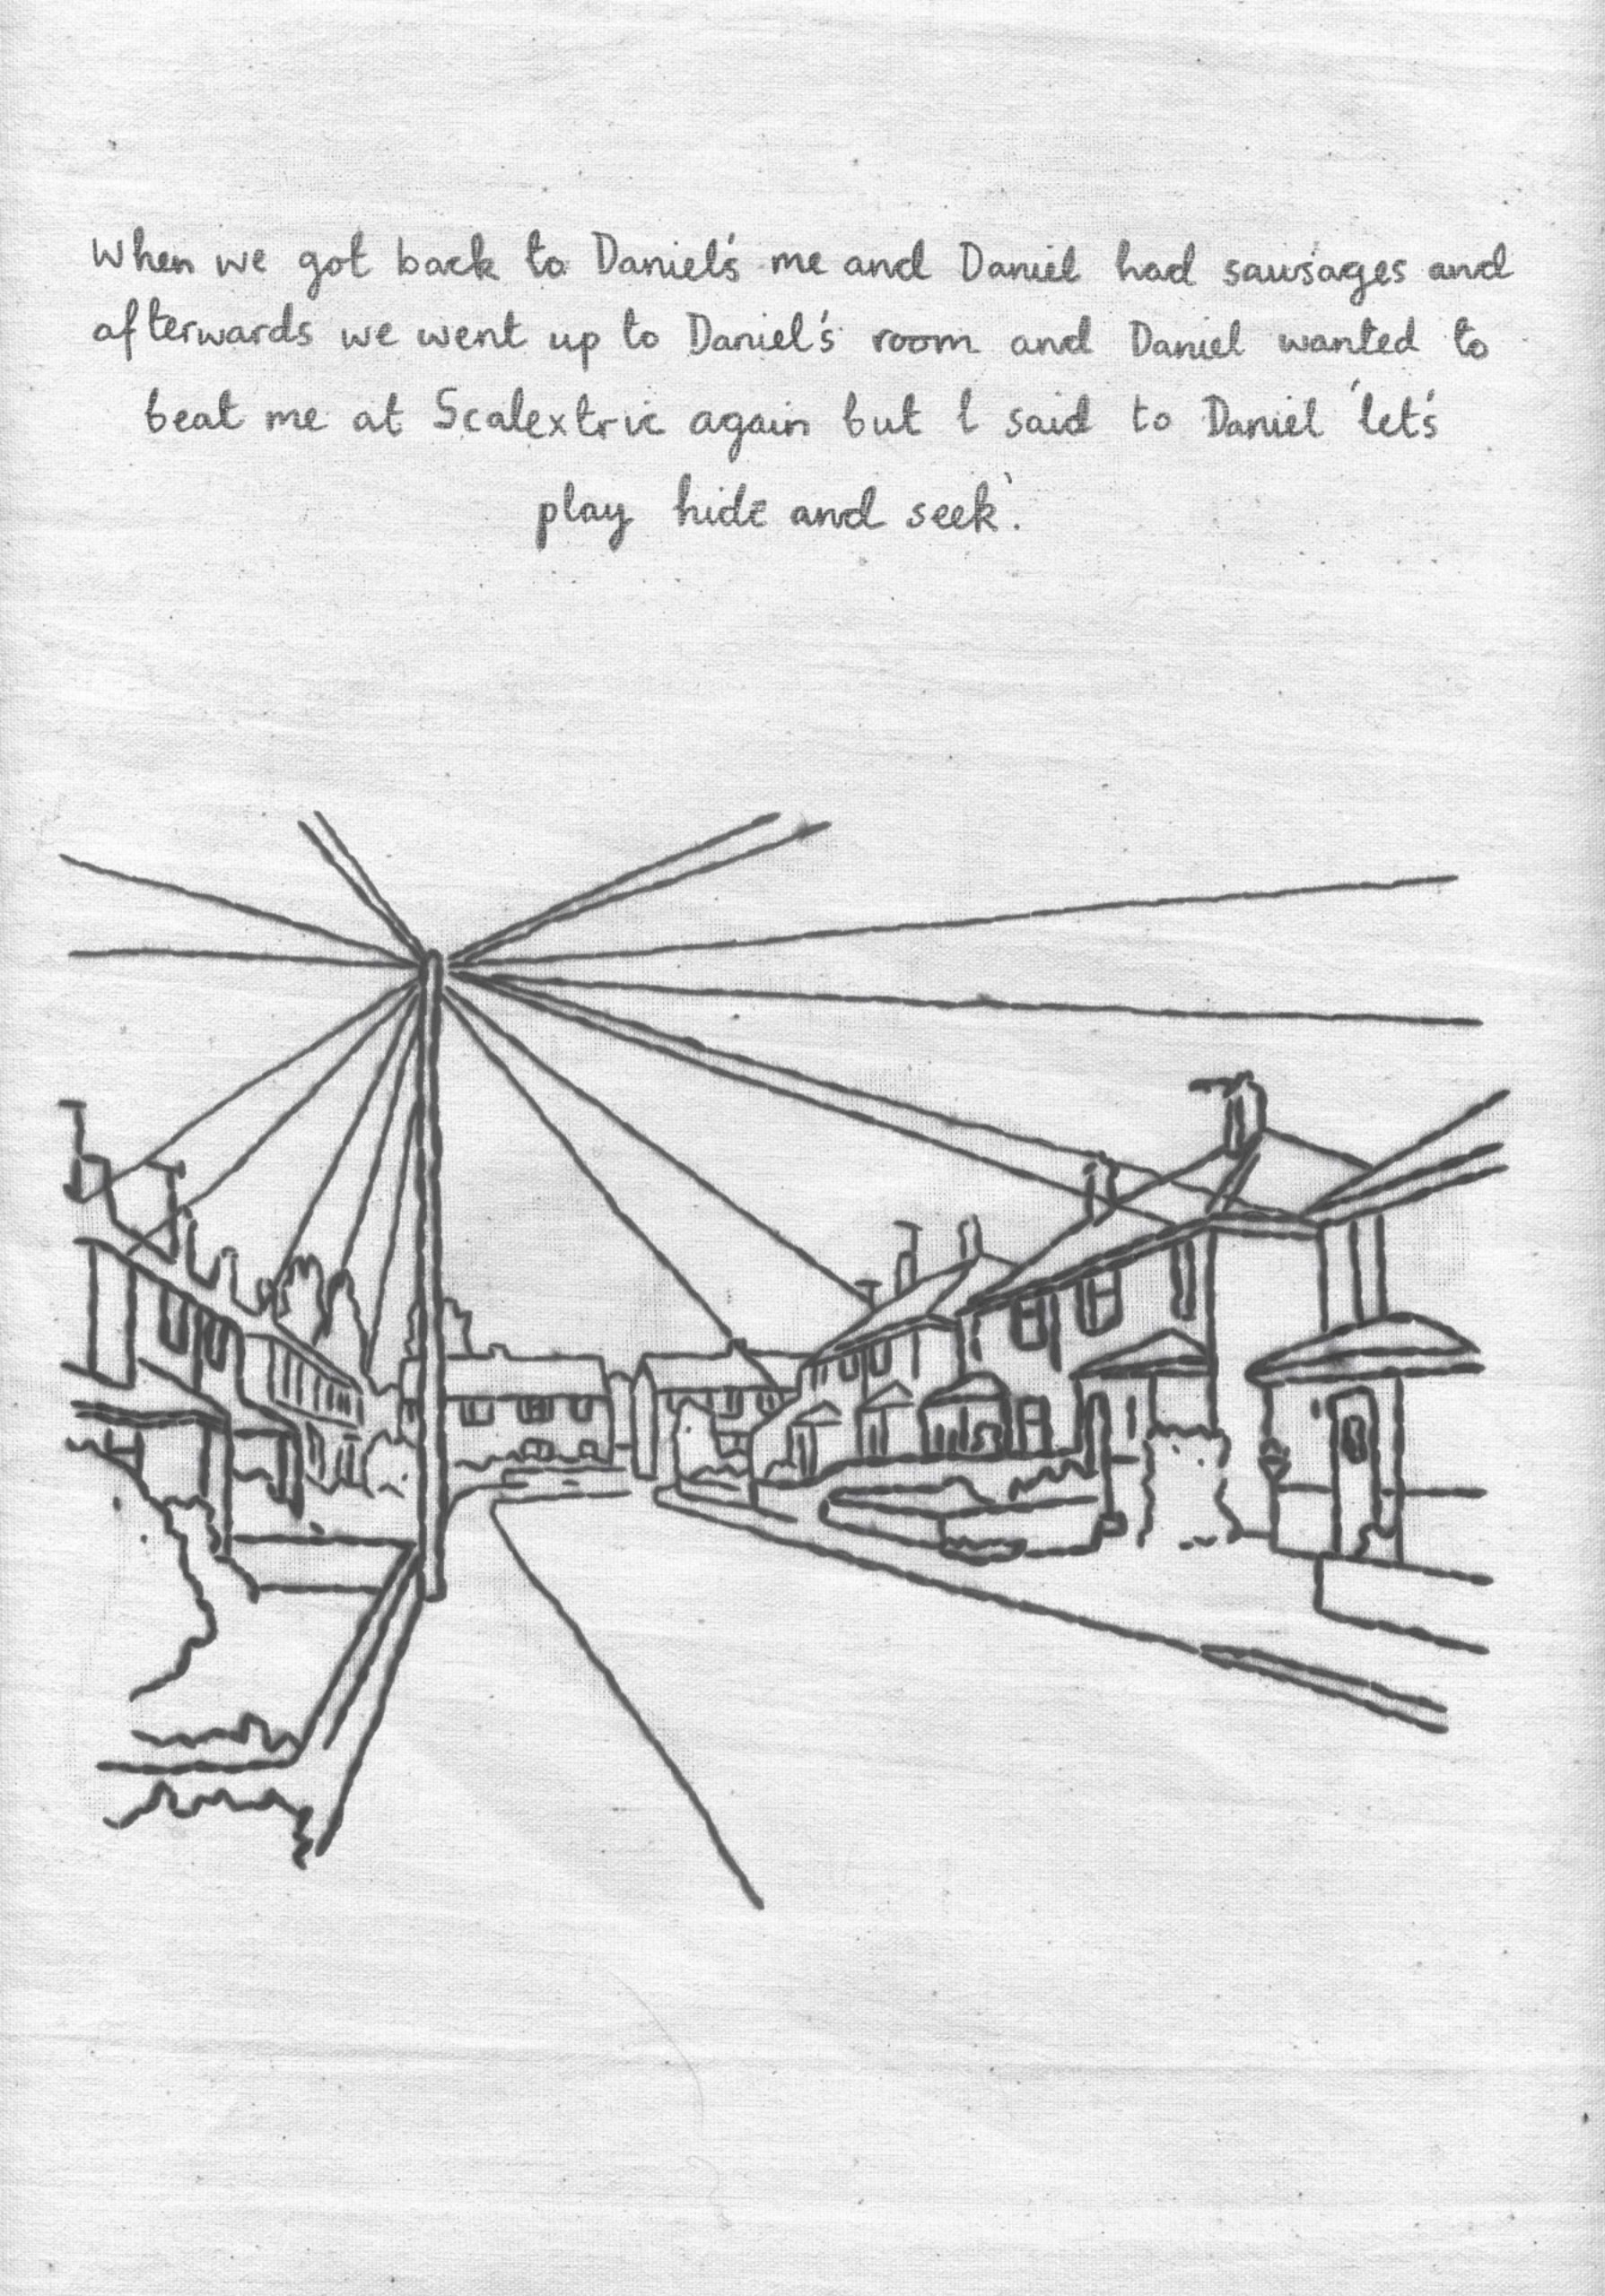 When we got back to Daniel's me and Daniel had sausages and
afterwards we went up to Daniel's room and Daniel wanted to
beat me at Scalextric again but I said to Daniel 'let's
play hide and seek'.